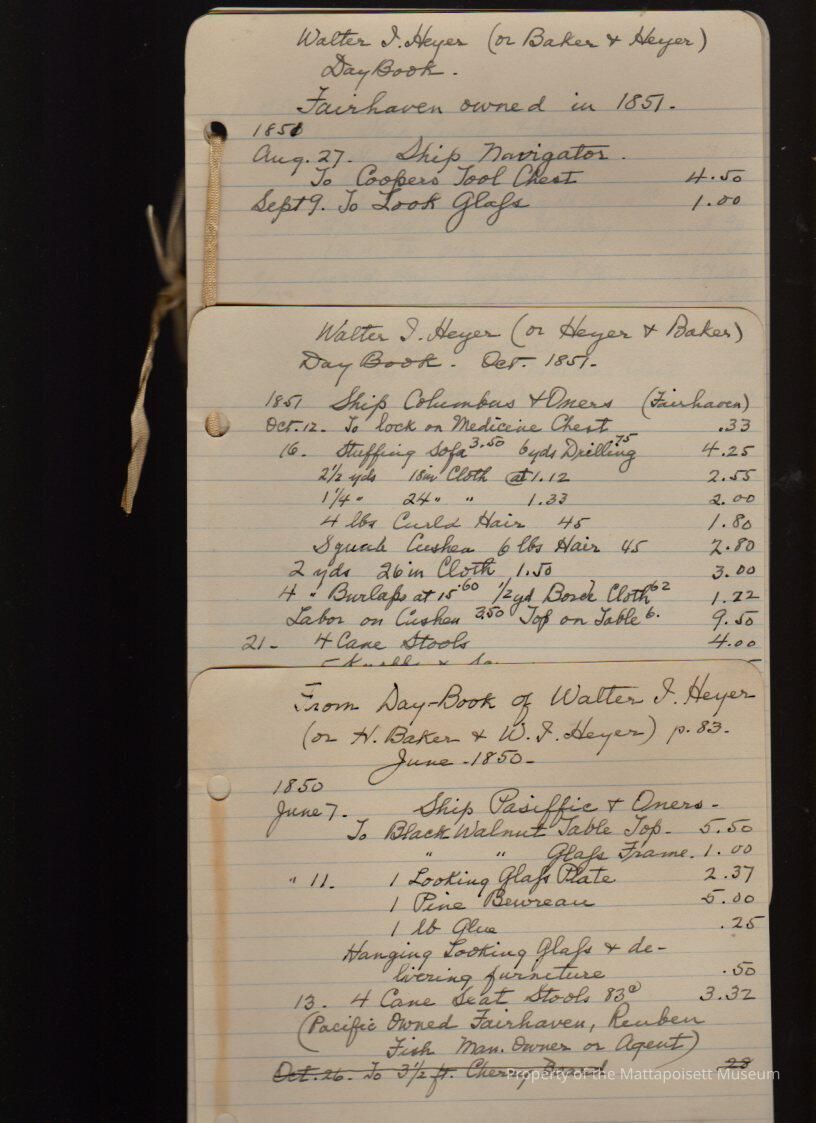 Walter I. Heyer (or Baker & Heyer)
Day Book.
Fairhaven owned in 1851.
1851
Aug. 27. Ship Navigator.
To Coopers Tool Chest 4.50
Sept 9. To Look Glass 1.00
Walter I. Heyer (or Heyer & Baker)
Day Book. Oct. 1851.
1851 Ship Columbus & Oners (Fairhaven)
Oct. 12. To lock on Medicine Chest .33
16. Stuffing Sofa 3.50 6 yds Drilling 75 4.25
2 1/2 yds 18 in Cloth @ 1.12 2.55
1 1/4 " 24 " " 1.33 2.00
4 lbs Curld Hair 45 1.80
Squab Cushen 6 lbs Hair 45 2.80
2 yds 26 in Cloth 1.50 3.00
4 " Burlaps at 15 60 1/2 yd Cloth 62 1.22
Labor on Cushen 3.50 Top on Table 6. 9.50
21 - 4 Cane Stools 4.00
From Day-Book of Walter I. Heyer
(or H. Baker & W. I. Heyer) p. 83.
June - 1850 -
1850
June 7. Ship Pasiffic & Oners -
To Black Walnut Table Top - 5.50
" " Glass Frame. 1.00
" 11. 1 Looking Glass Plate 2.37
1 Pine Bewreau 5.00
1 lb Glue .25
Hanging Looking Glass & de-
livering furniture .50
13. 4 Cane Seat Stools 83c 3.32
(Pacific Owned Fairhaven, Reuben
Fish Man. Owner or Agent)
Oct. 26. To 3 1/2 ft. Cherry Board 28
Property of the Mattapoisett Museum